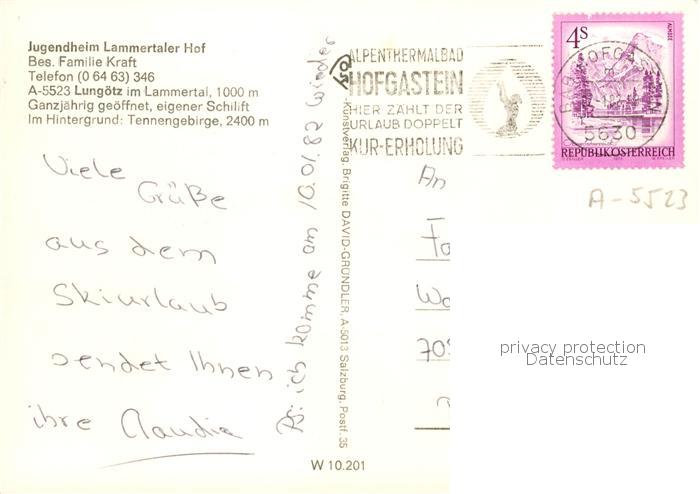 Jugendheim Lammertaler Hof
Bes. Familie Kraft
Telefon (0 64 63) 346
A-5523 Lungötz im Lammertal, 1000 m
Ganzjährig geöffnet, eigener Schilift
Im Hintergrund: Tennengebirge, 2400 m
Viele
Grüße
aus dem
Skiurlaub
sendet Ihnen
ihre Claudia
PS: ich komme am 10.01.82 wieder
Kunstverlag Brigitte DAVID-GRÜNDLER, A-5013 Salzburg, Postf. 35
W 10.201
ALPENTHERMALBAD
HOFGASTEIN
HIER ZÄHLT DER
URLAUB DOPPELT
KUR-ERHOLUNG
BAD HOFGASTEIN
5630
4S
ALMSEE
REPUBLIK ÖSTERREICH
A-5523
An
Fa
70
privacy protection
Datenschutz